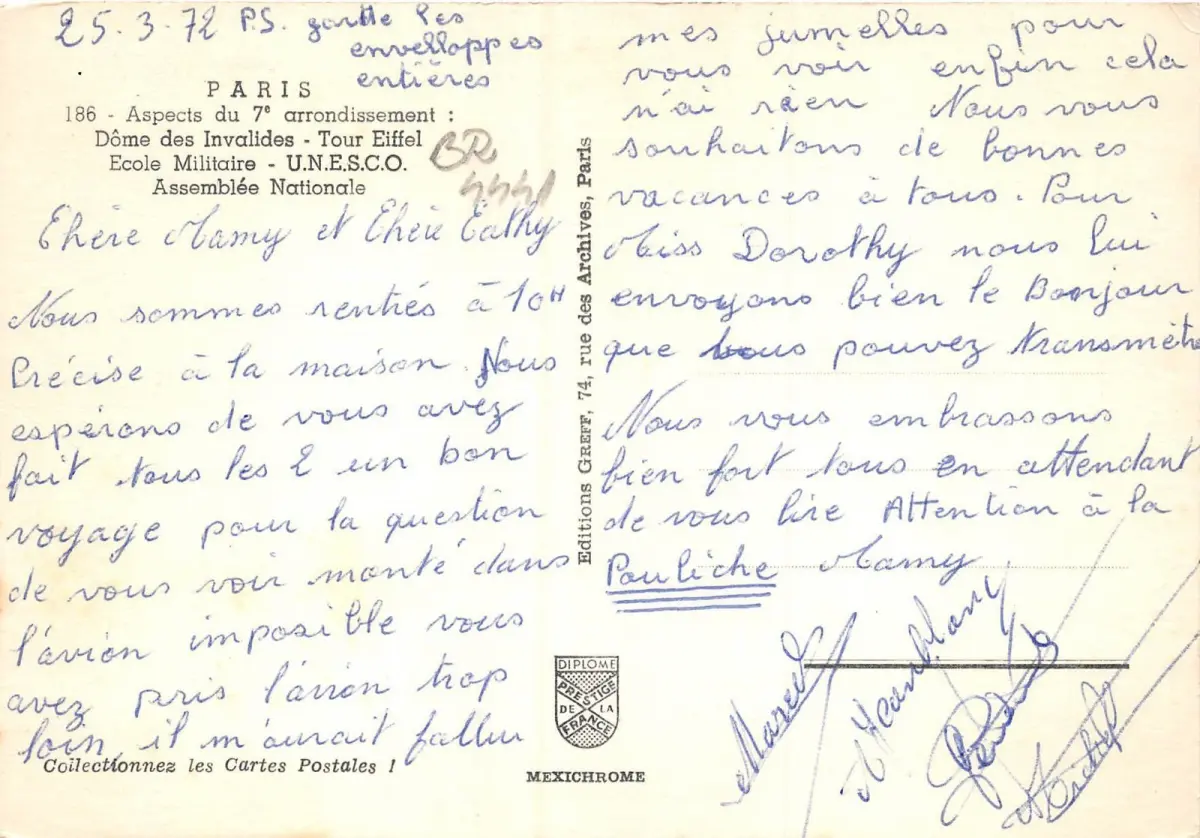 25.3.72 P.S. garde les
envelloppes
entières
PARIS
186 - Aspects du 7e arrondissement :
Dôme des Invalides - Tour Eiffel
Ecole Militaire - U.N.E.S.C.O.
Assemblée Nationale
BR
4441
Chère Mamy et Chère Cathy
Nous sommes rentrés à 10H
Précise à la maison. Nous
espérons de vous avez
fait tous les 2 un bon
voyage pour la question
de vous voir monté dans
l'avion imposible vous
avez pris l'avion trop
loin, il m'aurait fallu
Collectionnez les Cartes Postales !
Editions GREFF, 74, rue des Archives, Paris
DIPLOME
PRESTIGE
DE LA
FRANCE
MEXICHROME
mes jumelles pour
vous voir enfin cela
n'ai rien Nous vous
souhaitons de bonnes
vacances à tous. Pour
Miss Dorothy nous lui
envoyons bien le Bonjour
que vous pouvez transmètre
Nous vous embrassons
bien fort tous en attendant
de vous lire Attention à la
Pouliche Mamy
Marcel
Michel